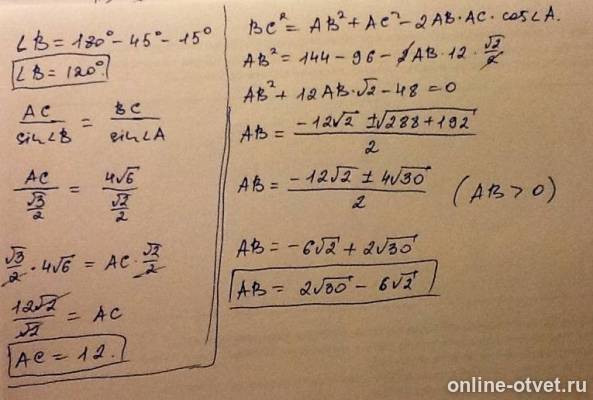 ∠B = 180° - 45° - 15°
∠B = 120°.
AC/sin∠B = BC/sin∠A
AC/(√3/2) = 4√6/(√2/2)
√3/2 · 4√6 = AC · √2/2
12√2/√2 = AC
AC = 12.
BC² = AB² + AC² - 2AB·AC · cos∠A.
AB² = 144 - 96 - 2AB · 12 · √2/2
AB² + 12AB·√2 - 48 = 0
AB = (-12√2 ± √288+192)/2
AB = (-12√2 ± 4√30)/2 (AB > 0)
AB = -6√2 + 2√30
AB = 2√30 - 6√2
online-otvet.ru